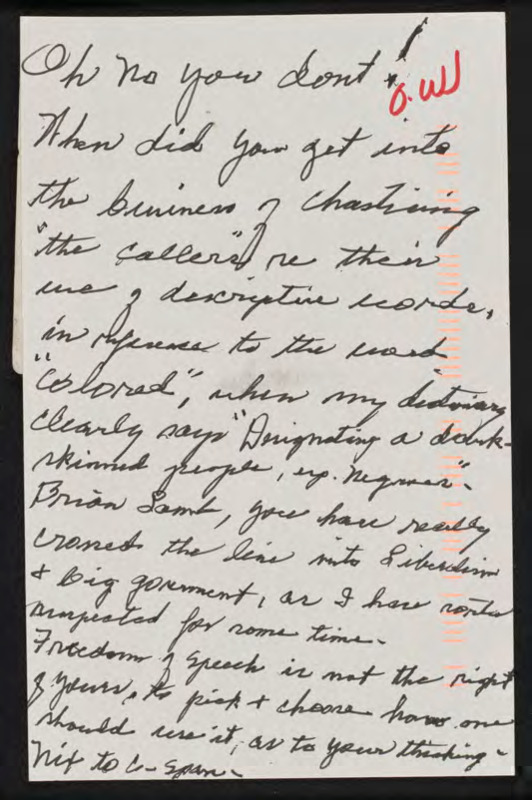 Oh no you dont!
O. W
When did you get into
the business of chastising
"the callers" re their
use of descriptive words,
in reference to the word
"Colored", when my dictionary
clearly says "Designating a dark-
skinned people, esp. Negroes".
Brian Lamb, you have really
crossed the line into Liberalism
+ big goverment, as I have
suspected for some time.
Freedom of Speech is not the right
of yours, to pick + choose how one
should use it, as to your thinking -
Nix to C-Span -